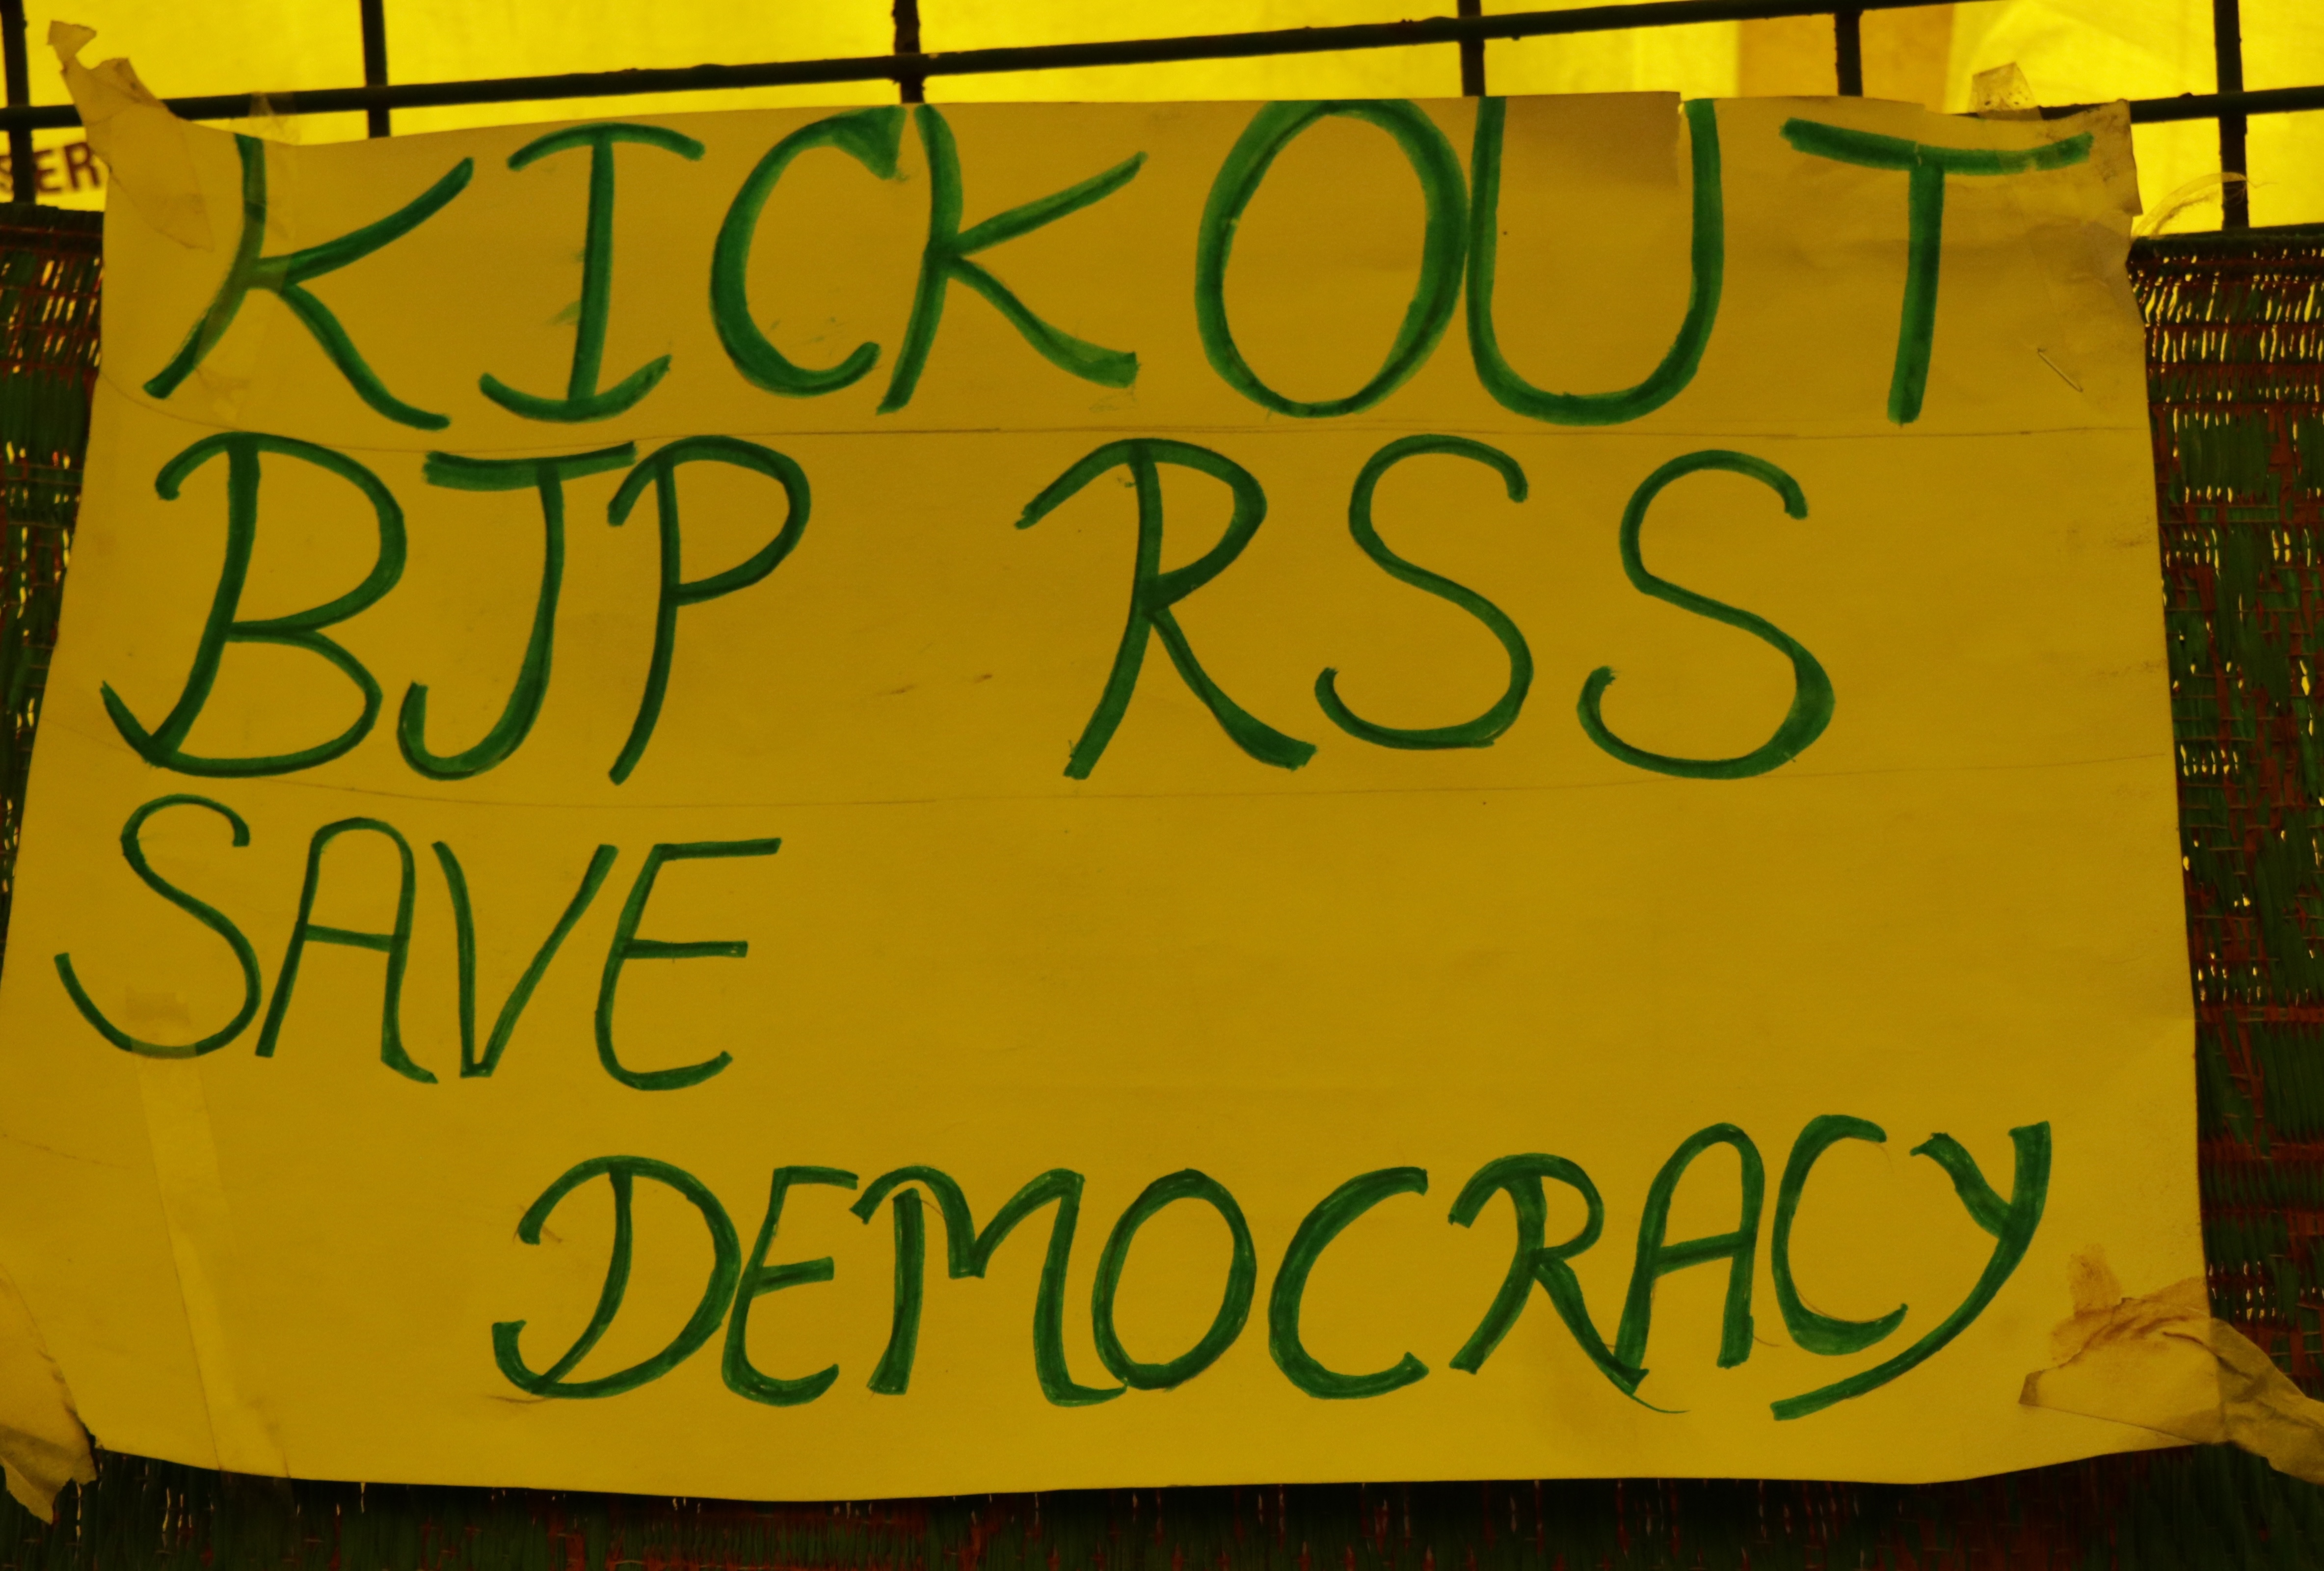 KICK OUT
BJP RSS
SAVE
DEMOCRACY